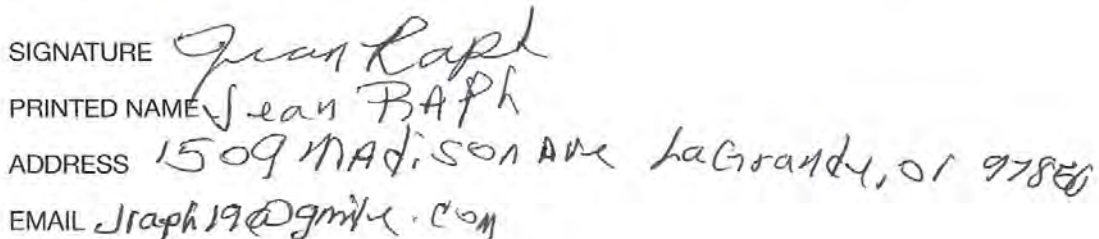 SIGNATURE Jean Raph
PRINTED NAME Jean RAPh
ADDRESS 1509 MADiSON Ave LaGrande, Or 97850
EMAIL Jraph19@gmile.com